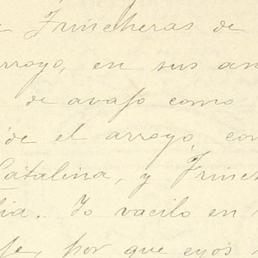 Trincheras de
arroyo, en sus an
de avajo como
de el arroyo, con
Catalina, y Trinch
lia. Yo vacilo en
se, por que eyos